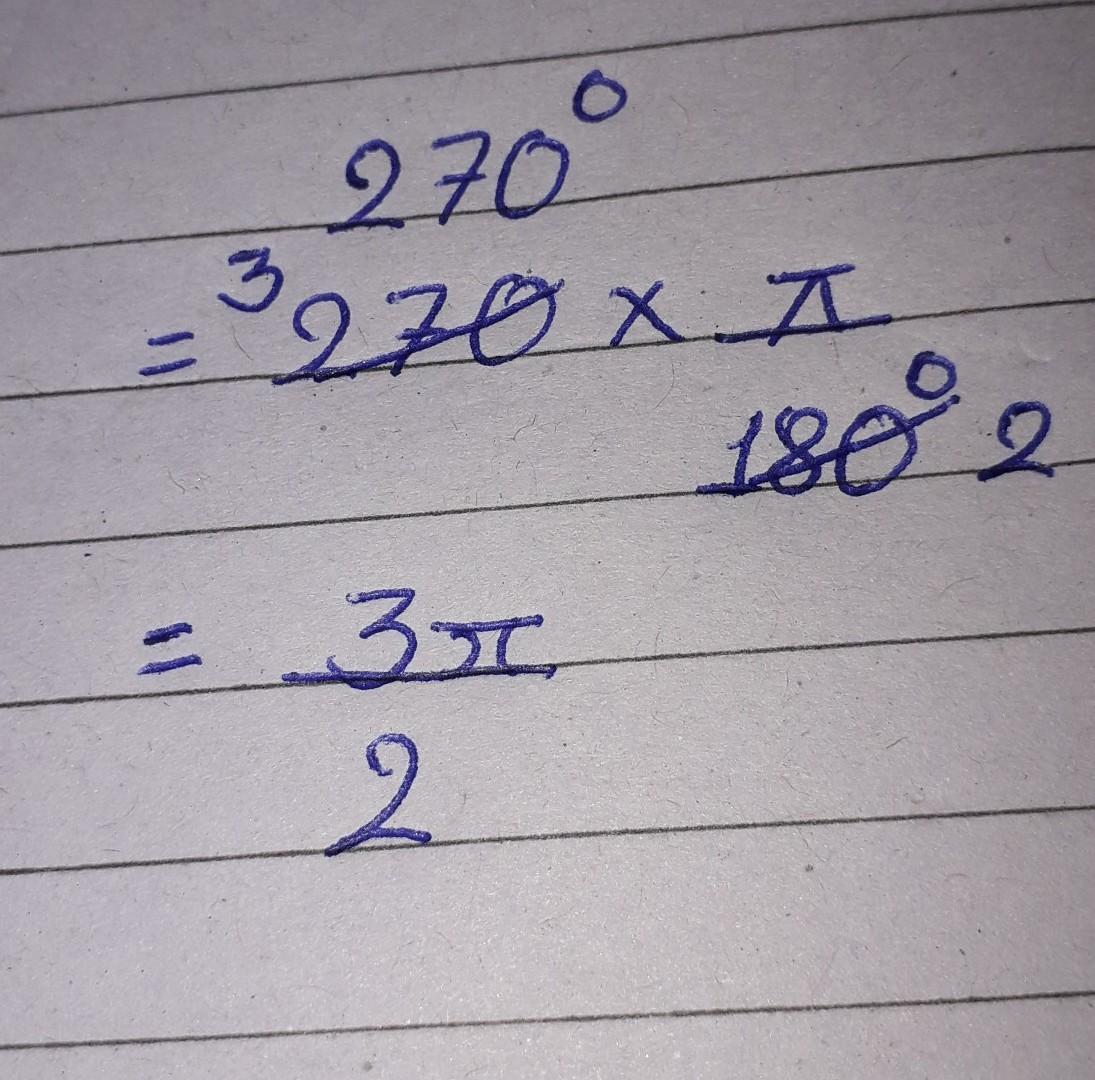 270°
= ³270 × π
180° 2
= 3π
2